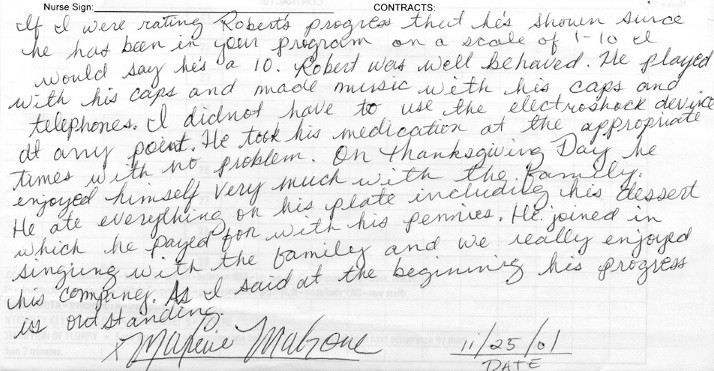 Nurse Sign: CONTRACTS:
If I were rating Robert's progress that he's shown since
he has been in your program on a scale of 1-10 I
would say he's a 10. Robert was well behaved. He played
with his caps and made music with his caps and
telephones. I didnot have to use the electroshock device
at any point. He took his medication at the appropriate
times with no problem. On Thanksgiving Day he
enjoyed himself very much with the family.
He ate everything on his plate including his dessert
which he payed for with his pennies. He joined in
singing with the family and we really enjoyed
his company. As I said at the beginning his progress
is outstanding.
x 11/25/01
DATE